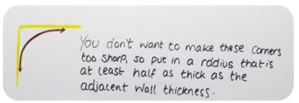 You don't want to make these corners
too sharp, so put in a radius that is
at least half as thick as the
adjacent wall thickness.